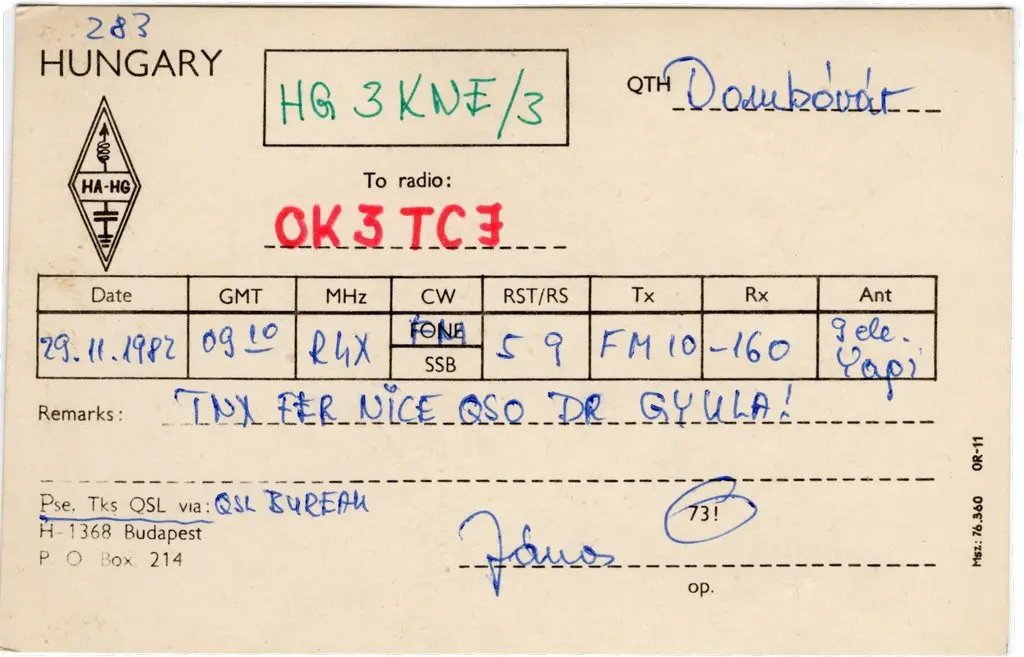 283
HUNGARY
HG 3 KNE/3
QTH Dombóvár
HA-HG
To radio:
OK3TCJ
Date GMT MHz CW RST/RS Tx Rx Ant
FONE
29.11.1982 09 10 R4X FM 59 FM 10 -160 9 ele. Yagi
SSB
Remarks: TNX FER NICE QSO DR GYULA!
Pse. Tks QSL via: QSL BUREAU
73!
H-1368 Budapest
P O Box 214
János
op.
Msz.: 76.360 OR-11